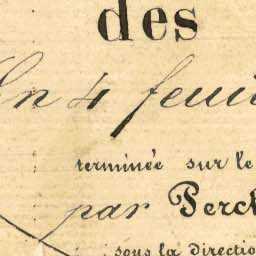 des
En 4 feuil
terminée sur le
par Perch
sous la directio